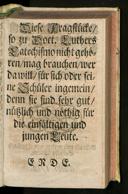 Diese Fragstücke/
so zu Doct. Luthers
Catechismo nicht gehö-
ren/ mag brauchen/ wer
da will/ für sich oder sei-
ne Schüler ingemein/
denn sie sind sehr gut/
nützlich und nöthig für
die einfältigen und
jungen Leute.
ENDE.